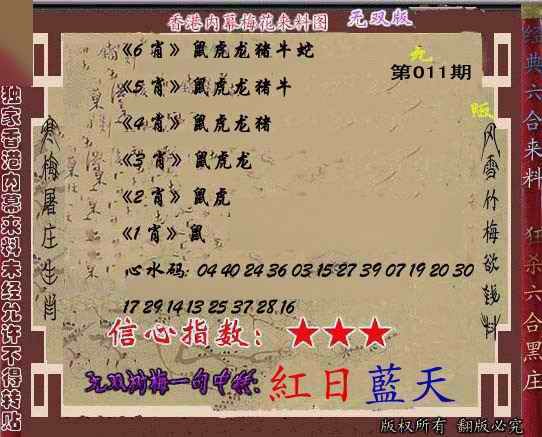 香港内幕梅花来料图 无双版
《6肖》鼠虎龙猪牛蛇
《5肖》鼠虎龙猪牛
《4肖》鼠虎龙猪
《3肖》鼠虎龙
《2肖》鼠虎
《1肖》鼠
第011期
心水码: 04 40 24 36 03 15 27 39 07 19 20 30
17 29 14 13 25 37 28 16
信心指数：★★★
紅日藍天
版权所有 翻版必究
独家香港内幕来料未经允许不得转贴
寒梅屠庄生肖
风雪竹梅欲钱料
经典六合来料 狂杀六合黑庄